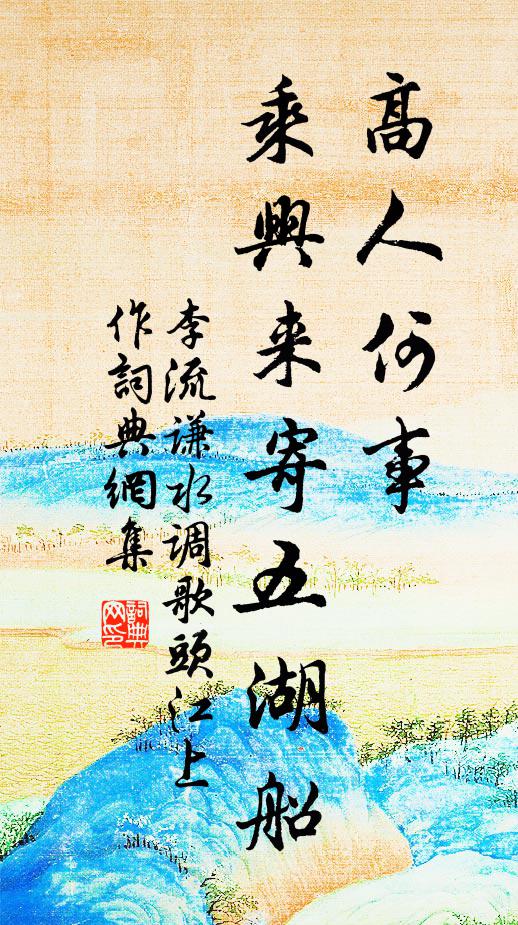 高人何事
乘興来寄五湖船
李流谦水调歌頭江上
作詞典網集
詞典
网印